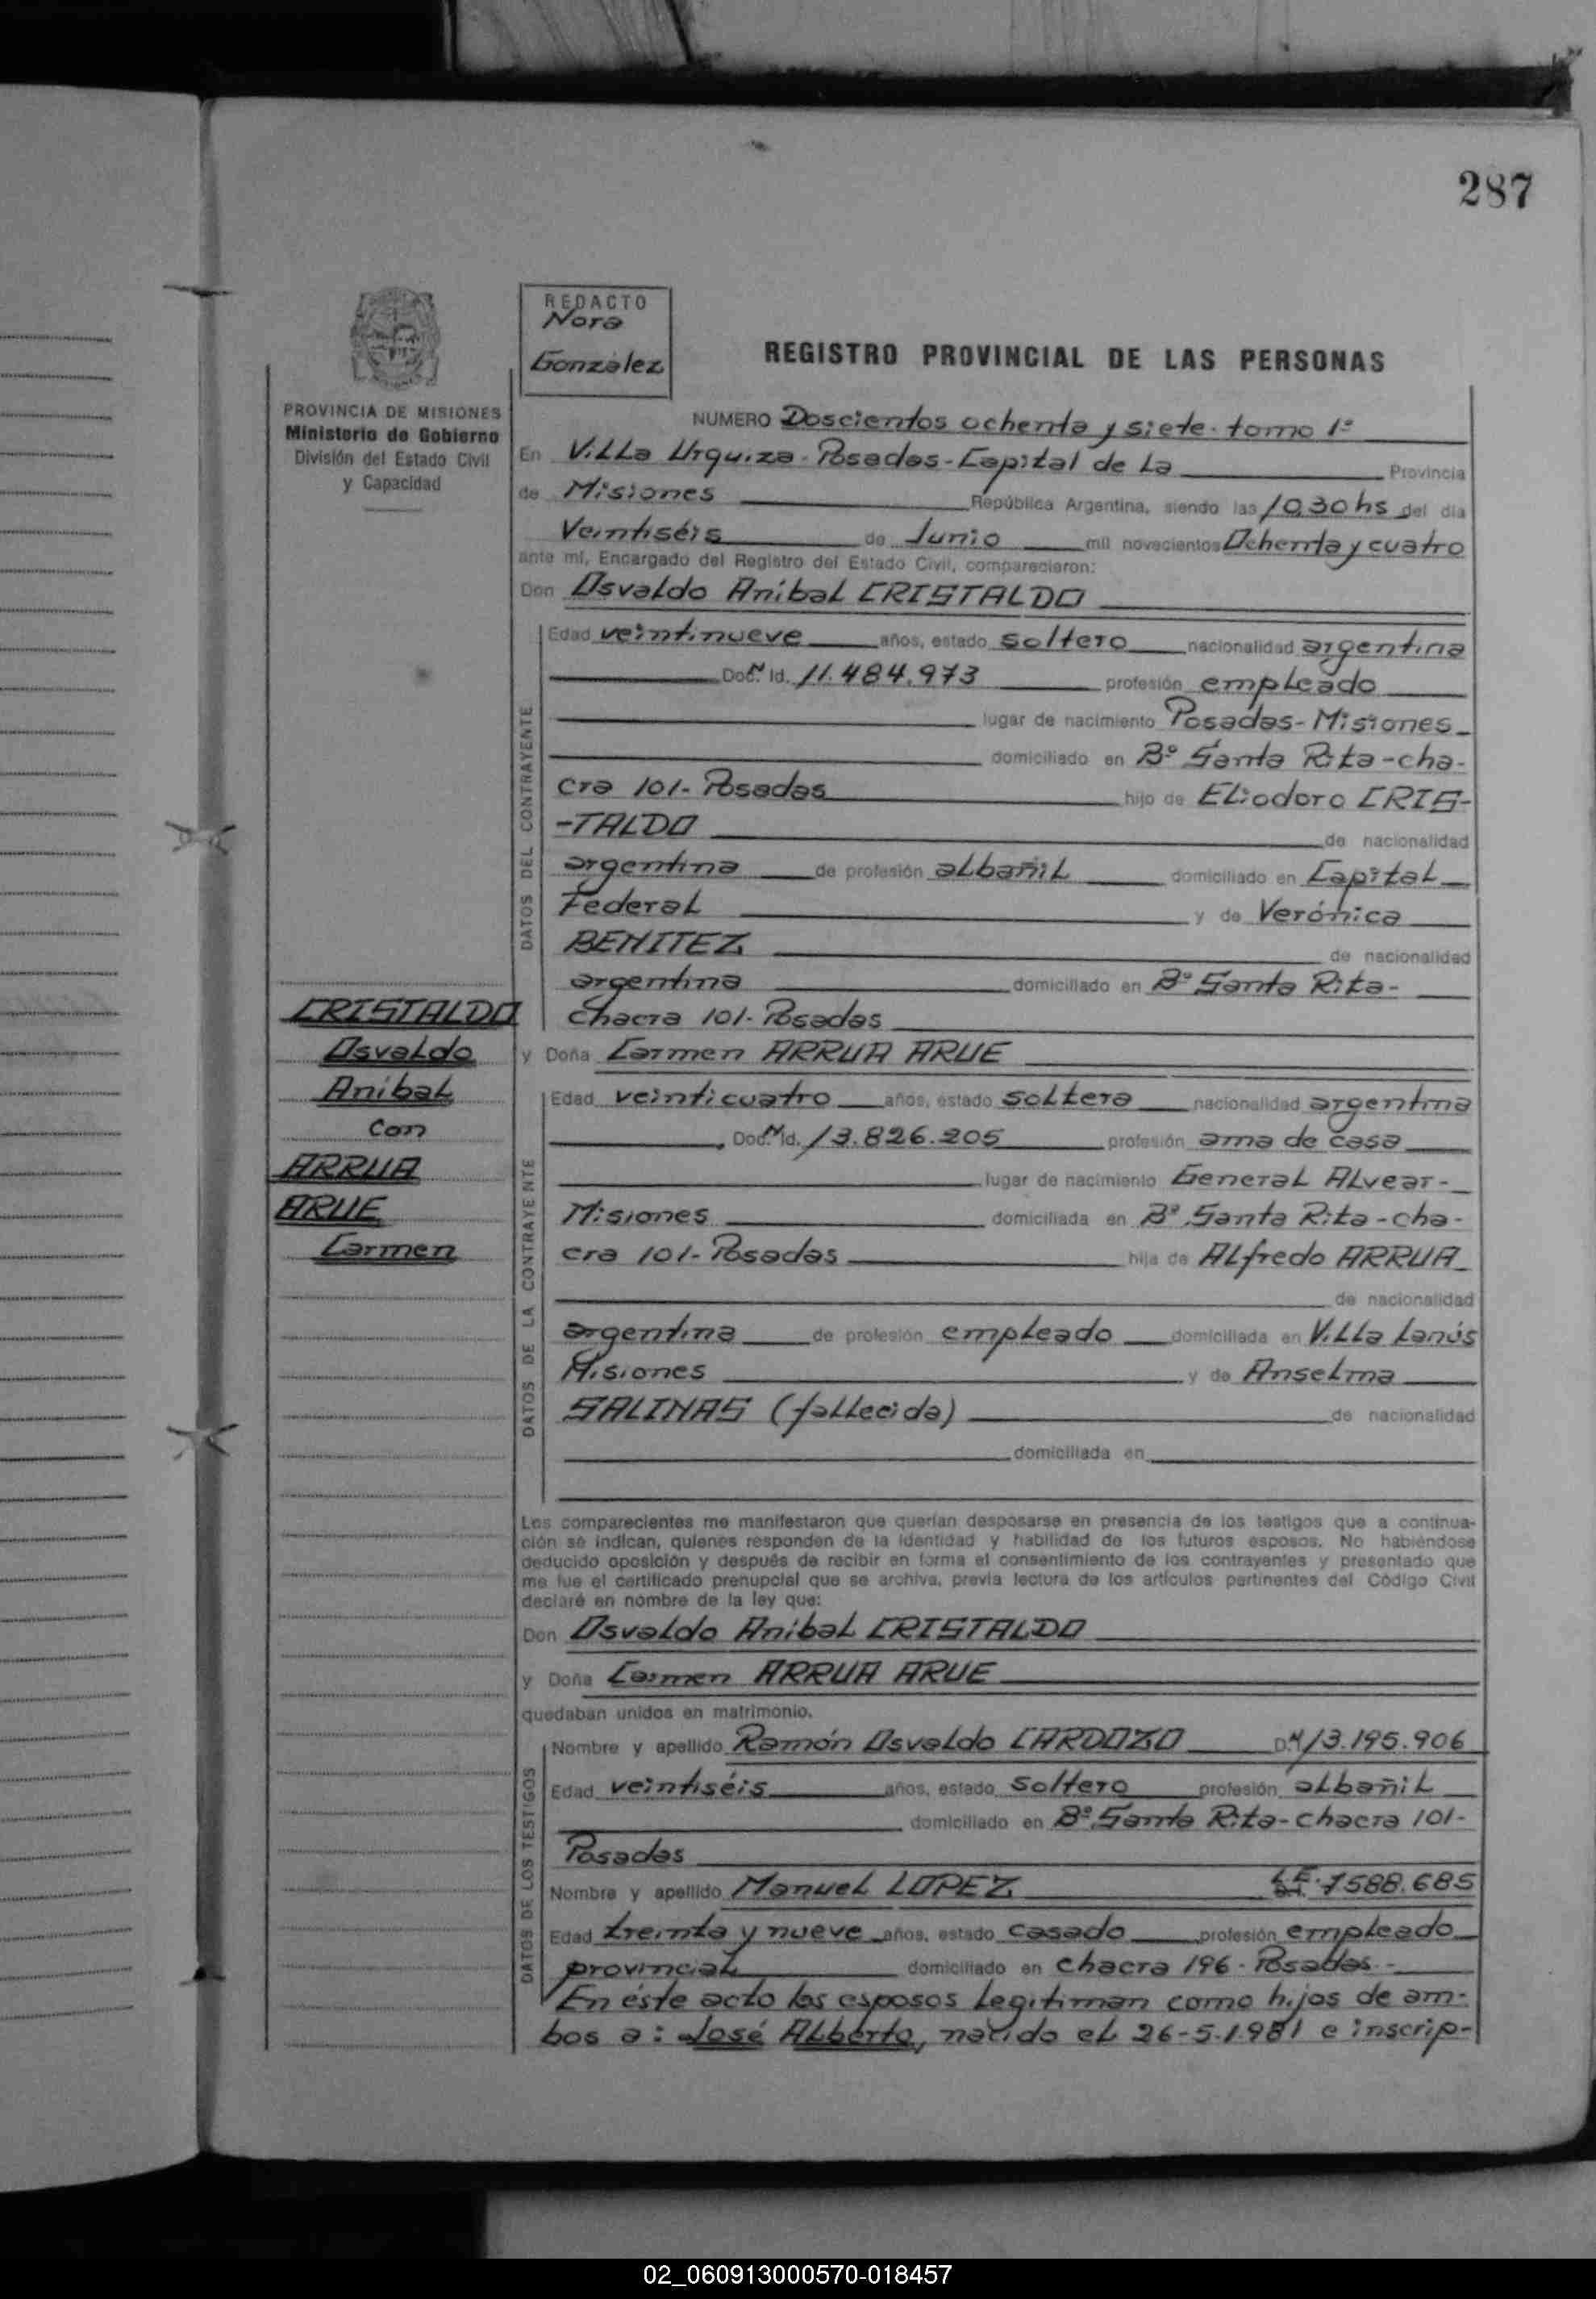 287
REDACTO
Nora
González
REGISTRO PROVINCIAL DE LAS PERSONAS
PROVINCIA DE MISIONES
Ministerio de Gobierno
División del Estado Civil
y Capacidad
NUMERO Doscientos ochenta y siete. tomo 1º
En Villa Urquiza - Posadas - Capital de La Provincia
de Misiones República Argentina, siendo las 10,30 hs del día
Veintiséis de Junio mil novecientos Ochenta y cuatro
ante mí, Encargado del Registro del Estado Civil, comparecieron:
Don Osvaldo Aníbal CRISTALDO
DATOS DEL CONTRAYENTE
Edad veintinueve años, estado soltero nacionalidad argentina
Doc. N Id. 11.484.973 profesión empleado
lugar de nacimiento Posadas - Misiones
domiciliado en Bº Santa Rita - cha-
cra 101 - Posadas hijo de Eliodoro CRIS-
-TALDO de nacionalidad
argentina de profesión albañil domiciliado en Capital
Federal y de Verónica
BENITEZ de nacionalidad
argentina domiciliado en Bº Santa Rita -
chacra 101 - Posadas
CRISTALDO
Osvaldo
Aníbal
con
ARRUA
ARUE
Carmen
y Doña Carmen ARRUA ARUE
DATOS DE LA CONTRAYENTE
Edad veinticuatro años, estado soltera nacionalidad argentina
Doc. N Id. 13.826.205 profesión ama de casa
lugar de nacimiento General Alvear -
Misiones domiciliada en Bº Santa Rita - cha-
cra 101 - Posadas hija de Alfredo ARRUA
de nacionalidad
argentina de profesión empleado domiciliada en Villa Lanús
Misiones y de Anselma
SALINAS (fallecida) de nacionalidad
domiciliada en
Los comparecientes me manifestaron que querían desposarse en presencia de los testigos que a continua-
ción se indican, quienes responden de la identidad y habilidad de los futuros esposos. No habiéndose
deducido oposición y después de recibir en forma el consentimiento de los contrayentes y presentado que
me fue el certificado prenupcial que se archiva, previa lectura de los artículos pertinentes del Código Civil
declaré en nombre de la ley que:
Don Osvaldo Aníbal CRISTALDO
y Doña Carmen ARRUA ARUE
quedaban unidos en matrimonio.
DATOS DE LOS TESTIGOS
Nombre y apellido Ramón Osvaldo CARDOZO D.N 13.195.906
Edad veintiséis años, estado soltero profesión albañil
domiciliado en Bº Santa Rita - chacra 101 -
Posadas
Nombre y apellido Manuel LOPEZ L.E. 7588.685
Edad treinta y nueve años, estado casado profesión empleado
provincial domiciliado en chacra 196 - Posadas -
En éste acto los esposos legitiman como hijos de am-
bos a: José Alberto, nacido el 26-5-1981 e inscrip-
02_060913000570-018457